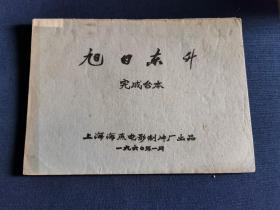 旭日东升
完成台本
上海海燕电影制片厂出品
一九六〇年一月